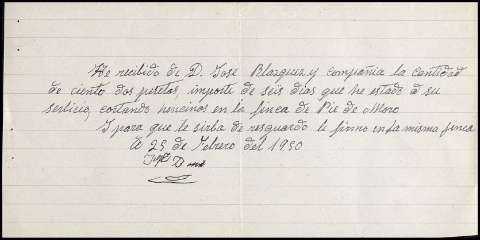 He recibido de D. Jose Blazquez y compañia la cantidad
de ciento dos pesetas, importe de seis dias que he estado a su
serbicio, cortando en la finca de Pie de Moro
I para que le sirba de resguardo le firmo en la misma finca
a 25 de Febrero del 1930